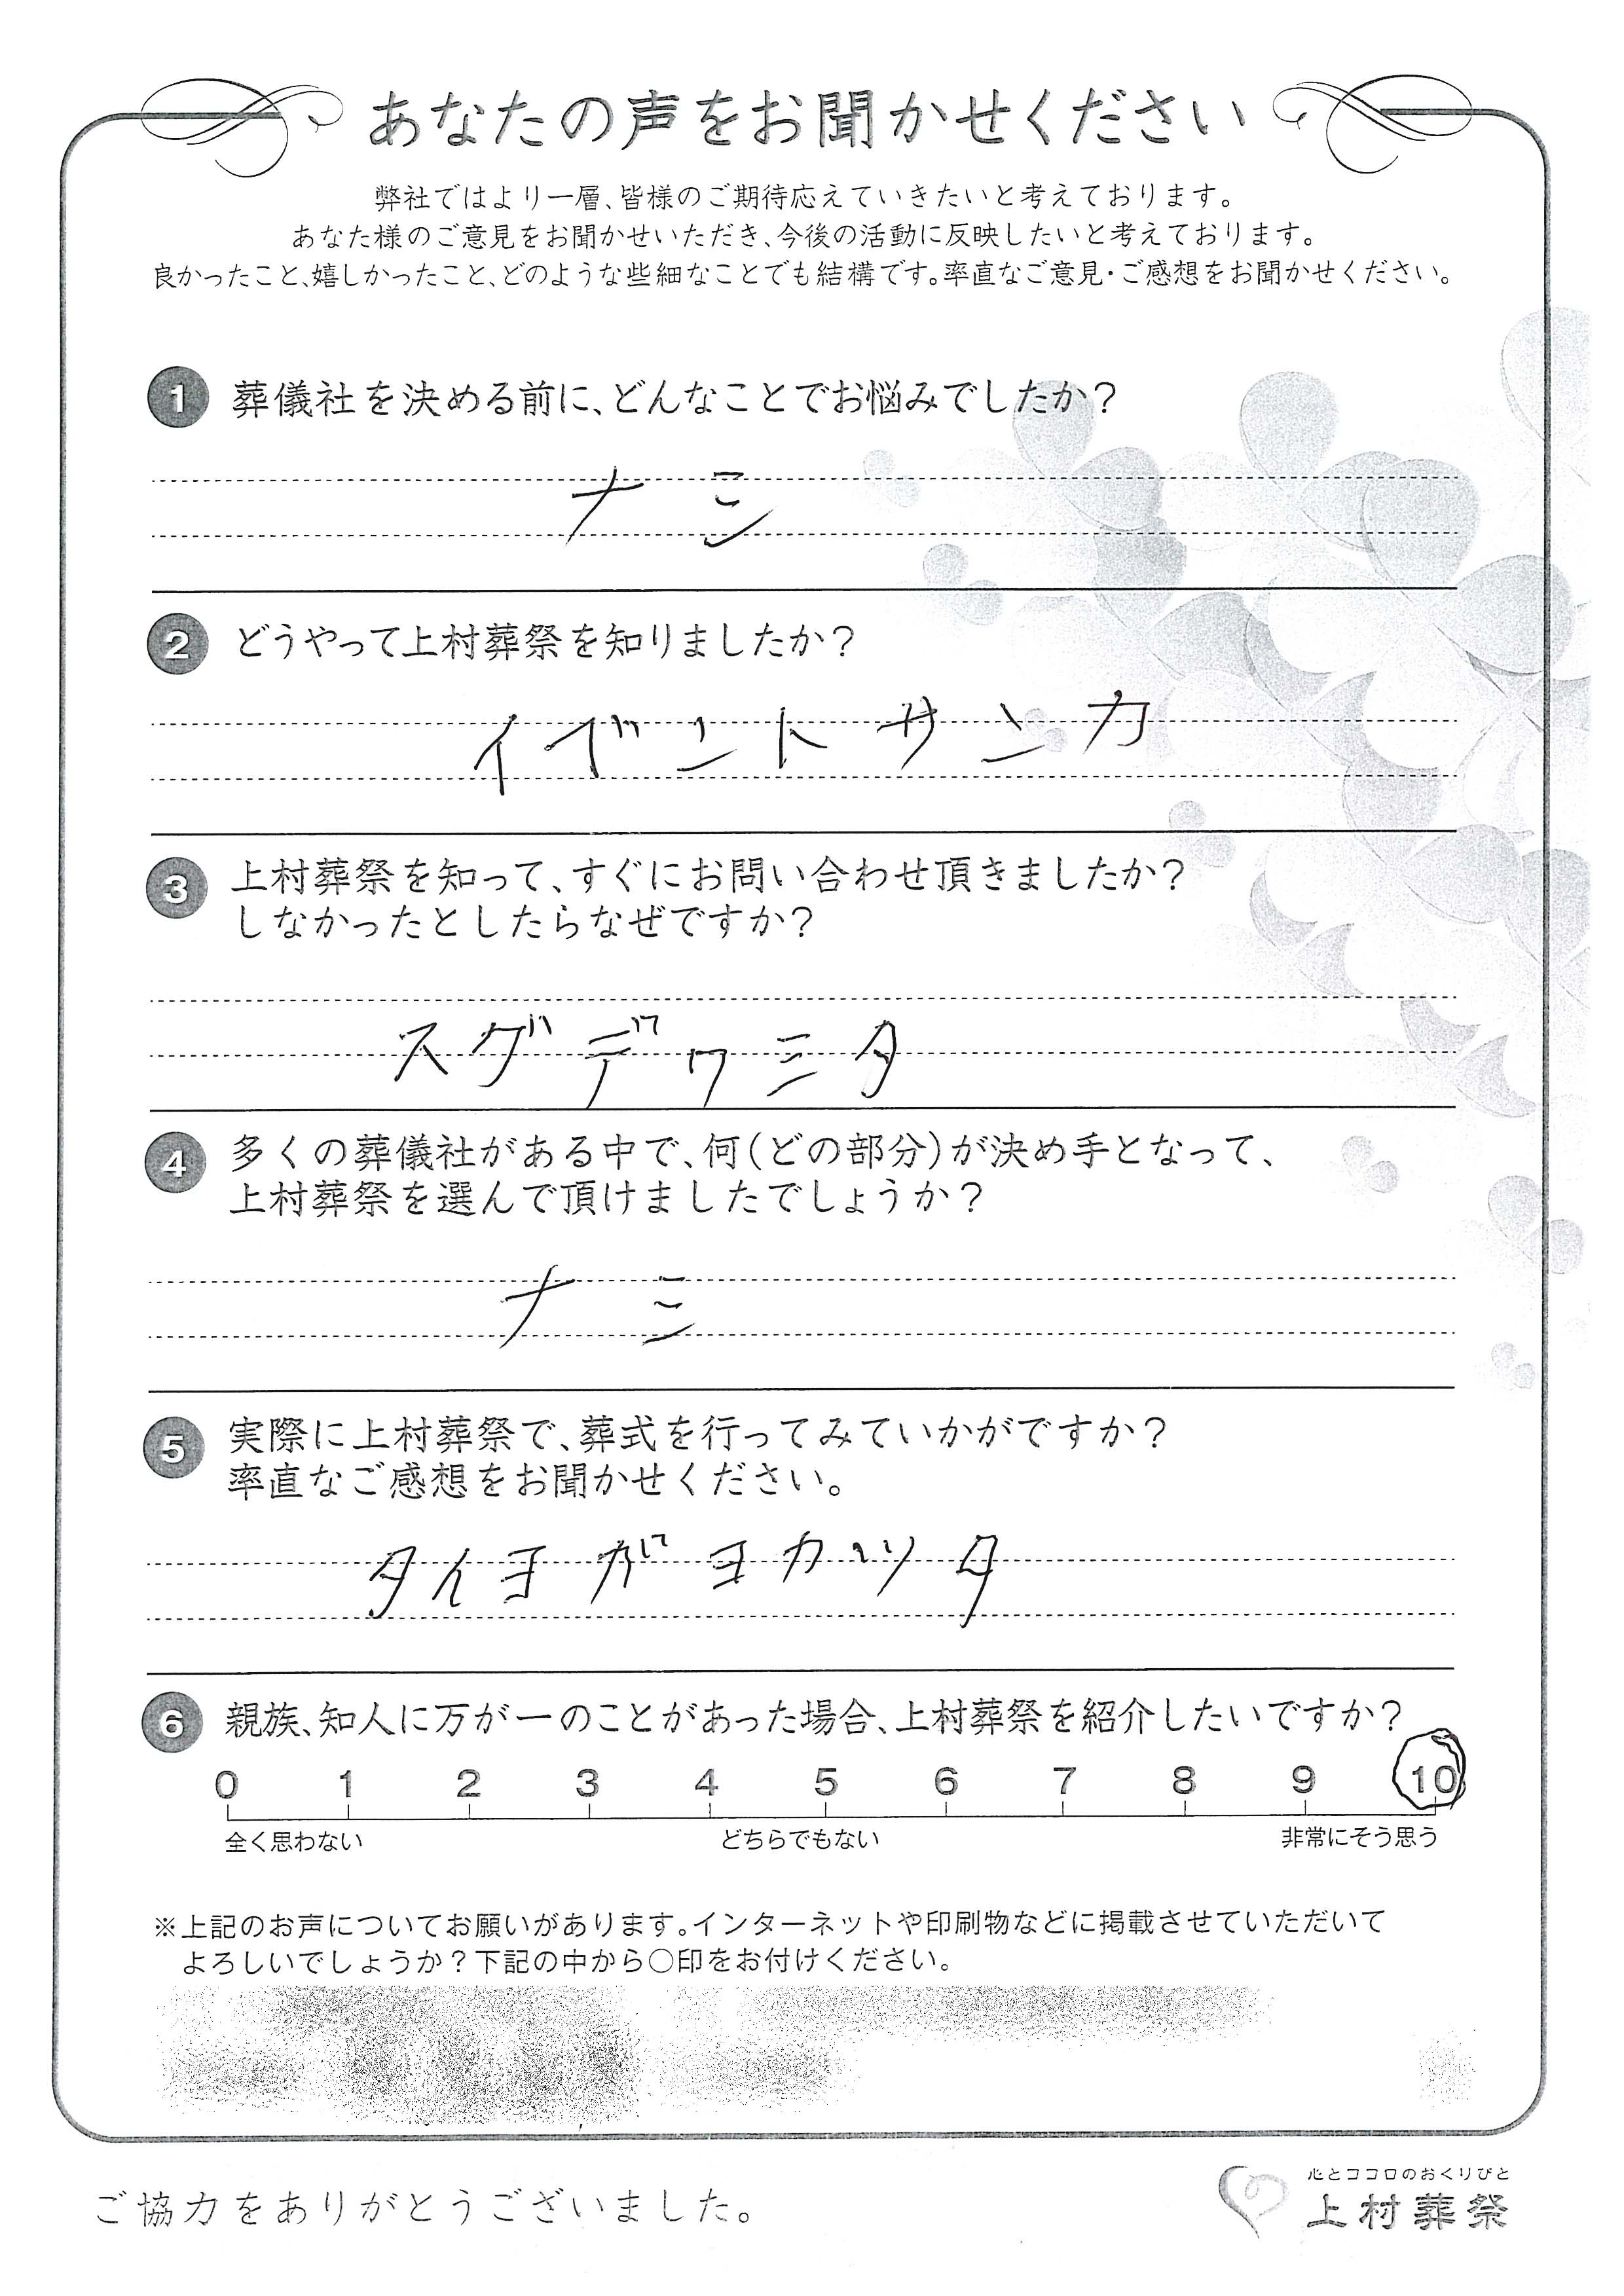 あなたの声をお聞かせください
弊社ではより一層、皆様のご期待応えていきたいと考えております。
あなた様のご意見をお聞かせいただき、今後の活動に反映したいと考えております。
良かったこと、嬉しかったこと、どのような些細なことでも結構です。率直なご意見・ご感想をお聞かせください。
1 葬儀社を決める前に、どんなことでお悩みでしたか?
ナシ
2 どうやって上村葬祭を知りましたか?
イベントサンカ
3 上村葬祭を知って、すぐにお問い合わせ頂きましたか?
しなかったとしたらなぜですか?
スグデワミタ
4 多くの葬儀社がある中で、何(どの部分)が決め手となって、
上村葬祭を選んで頂けましたでしょうか?
ナシ
5 実際に上村葬祭で、葬式を行ってみていかがですか?
率直なご感想をお聞かせください。
タイヨガヨカツタ
6 親族、知人に万が一のことがあった場合、上村葬祭を紹介したいですか?
0 1 2 3 4 5 6 7 8 9 10
全く思わない どちらでもない 非常にそう思う
※上記のお声についてお願いがあります。インターネットや印刷物などに掲載させていただいて
よろしいでしょうか?下記の中から○印をお付けください。
ご協力をありがとうございました。
心とココロのおくりびと
上村葬祭